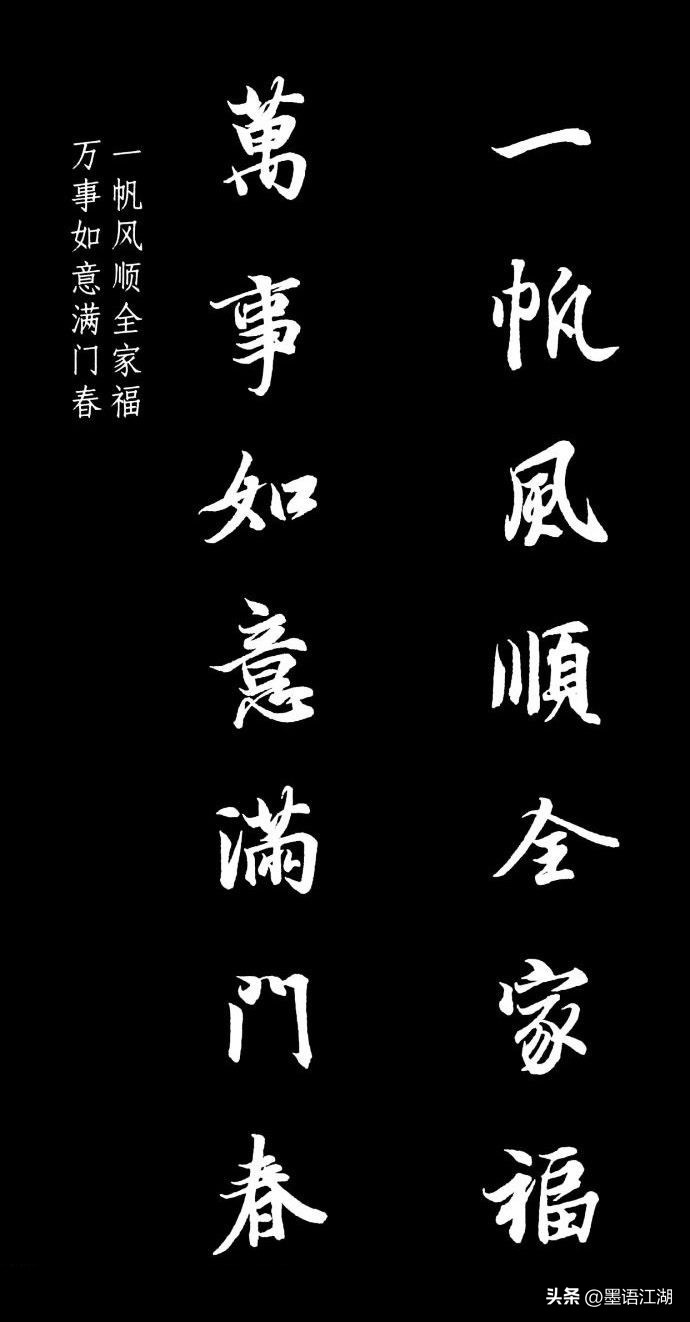 一帆風順全家福
萬事如意滿門春
一帆风顺全家福
万事如意满门春
头条 @墨语江湖